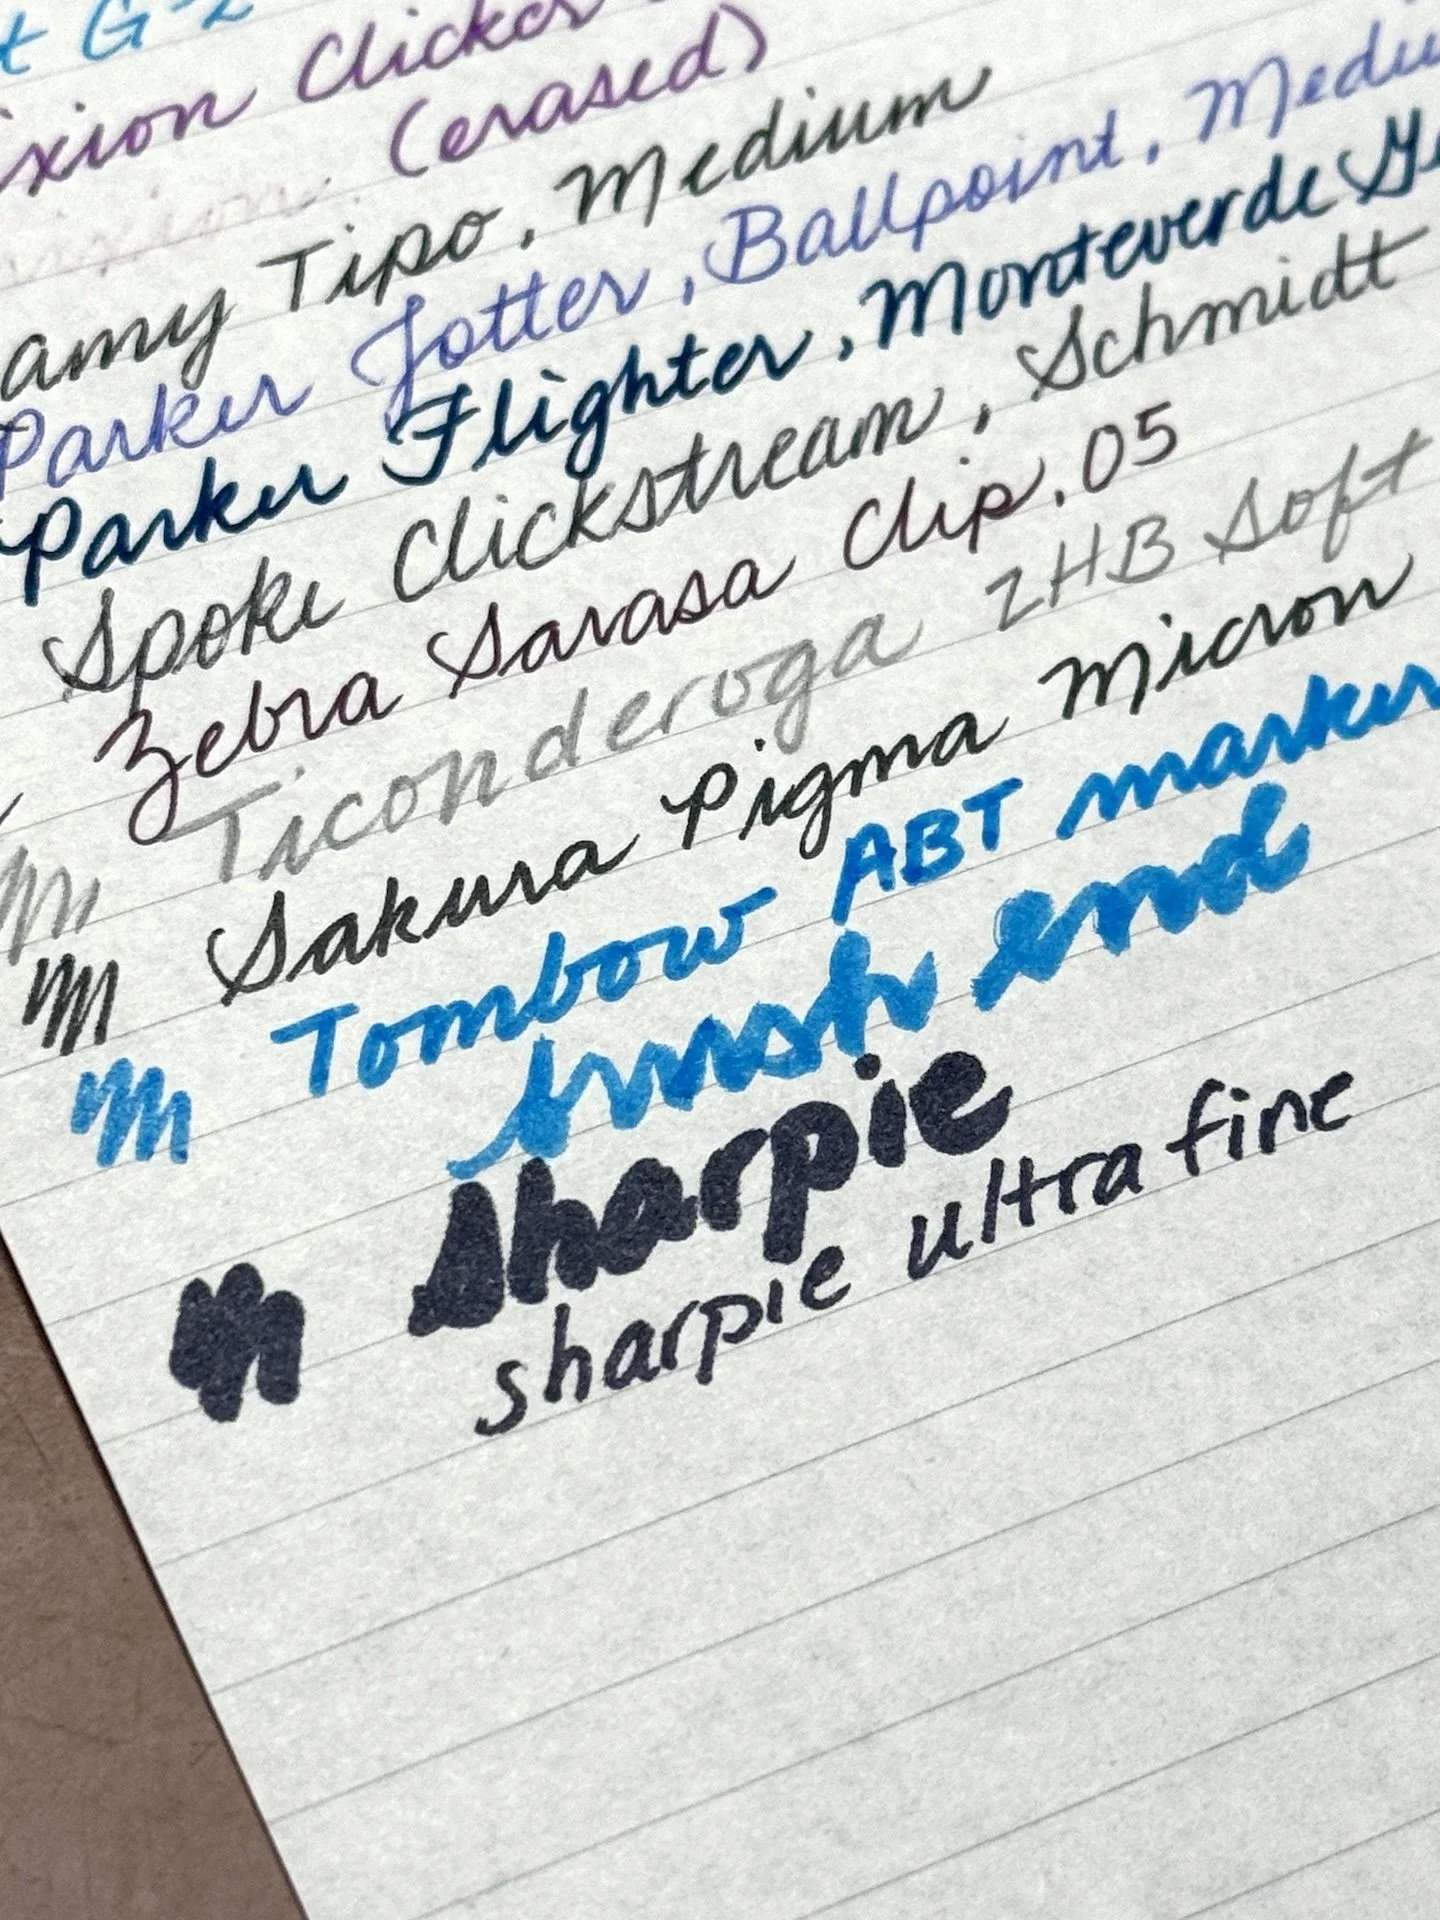 t G-2
ixion Clicker
(erased)
amy Tipo, Medium
Parker Jotter, Ballpoint, Mediu
Parker Flighter, Monteverde Ge
Spoke Clickstream, Schmidt
Zebra Sarasa Clip .05
Ticonderoga 2HB Soft
Sakura Pigma Micron
Tombow ABT marker
brush end
sharpie
sharpie ultra fine